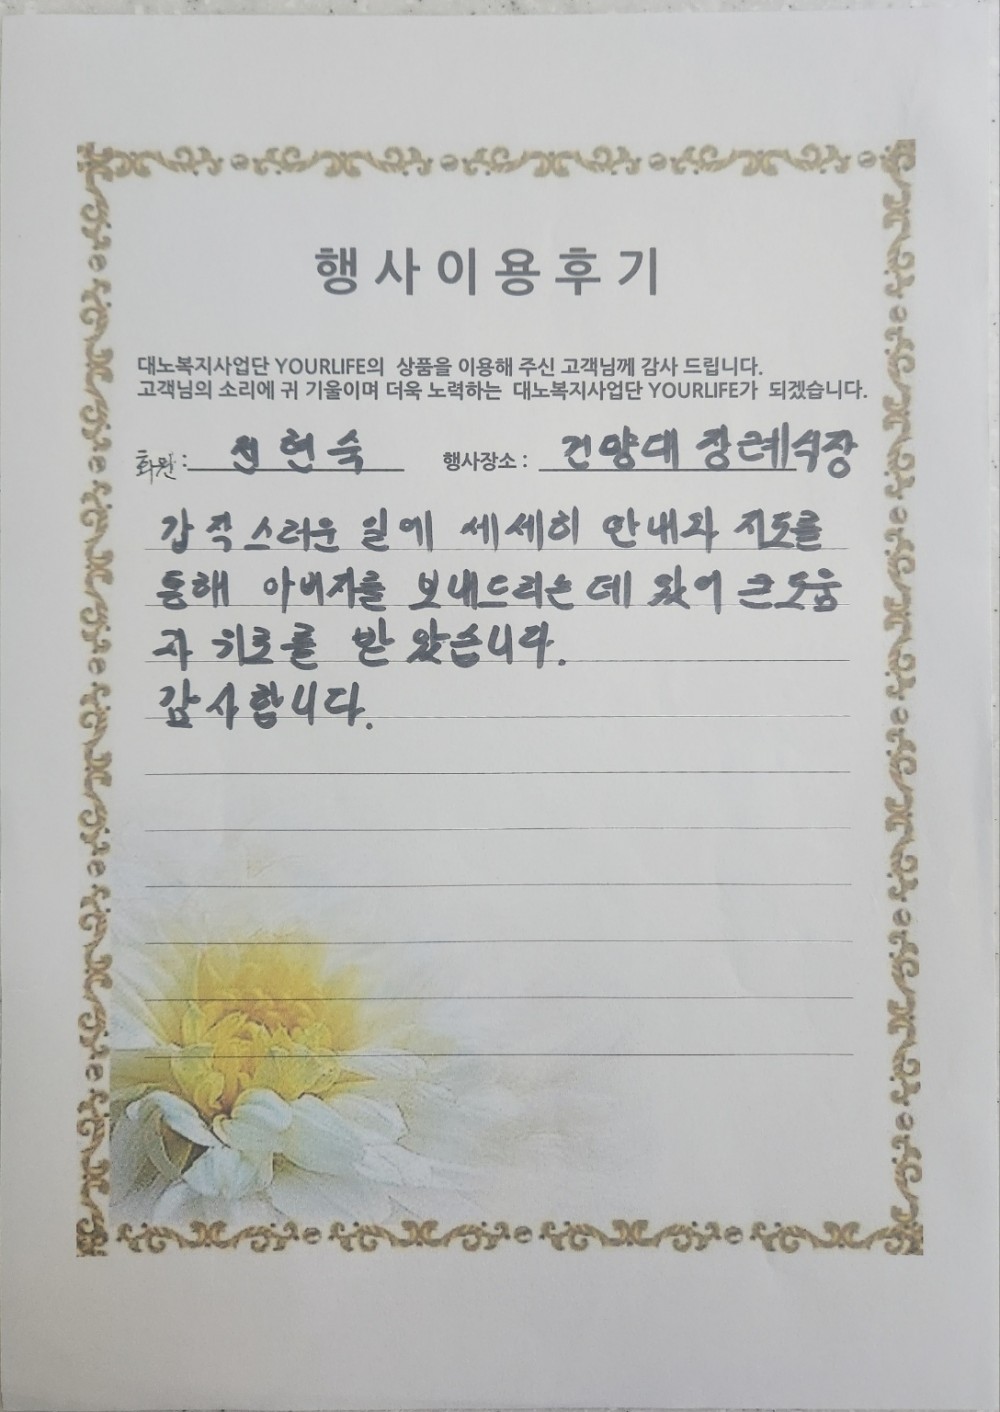 행사이용후기
대노복지사업단 YOURLIFE의 상품을 이용해 주신 고객님께 감사 드립니다.
고객님의 소리에 귀 기울이며 더욱 노력하는 대노복지사업단 YOURLIFE가 되겠습니다.
회원 : 전현숙 행사장소 : 건양대 장례식장
갑작스러운 일에 세세히 안내와 지도를
통해 아버지를 보내드리는 데 있어 큰 도움
과 위로를 받았습니다.
감사합니다.